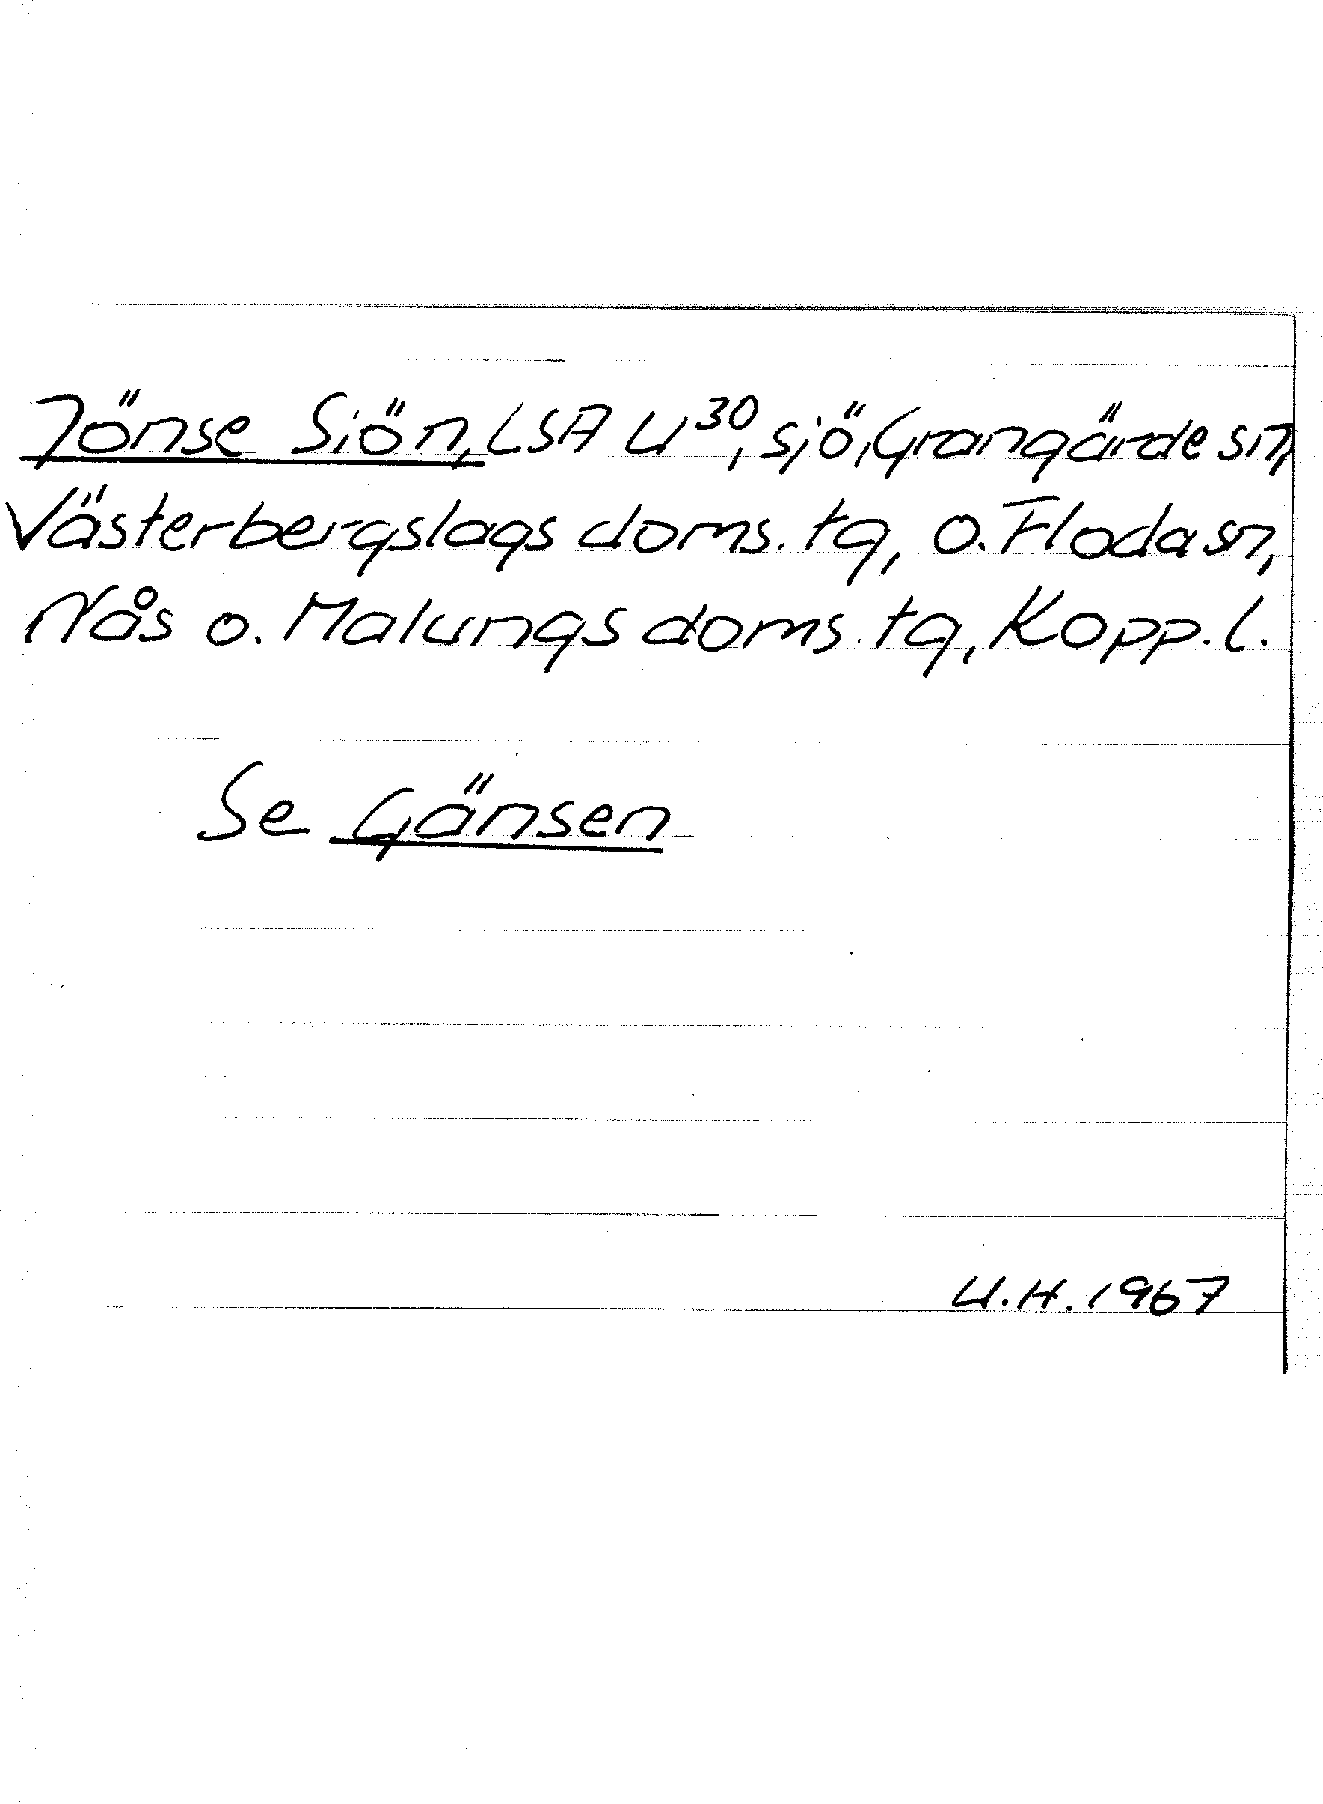 Jönse Siön, LSA U³⁰, sjö, Grangärde sn,
Västerbergslags doms. tg, o. Floda sn,
Nås o. Malungs doms. tg, Kopp. l.
Se Gänsen
U.H. 1967